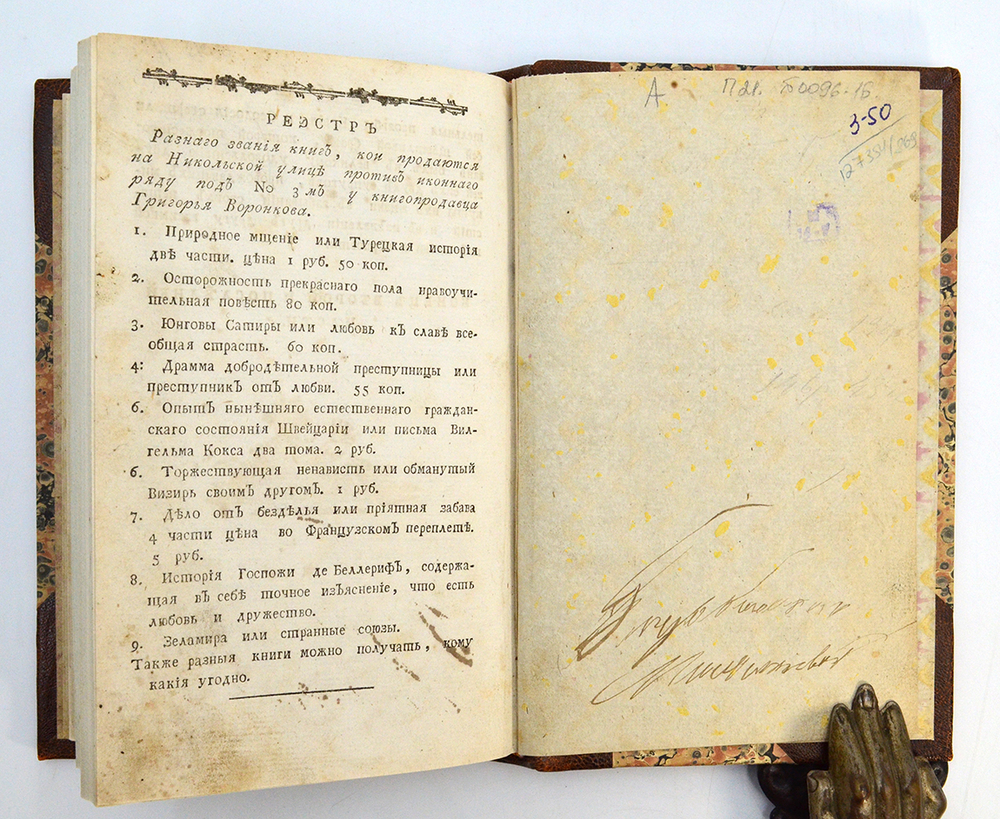 РЕЭСТРЪ
Разнаго званія книгъ, кои продаются
на Никольской улицѣ противъ иконнаго
ряду подъ No 3мъ у книгопродавца
Григорья Воронкова.
1. Природное мщеніе или Турецкая исторія
двѣ части. цѣна 1 руб. 50 коп.
2. Осторожность прекраснаго пола нравоучи-
тельная повѣсть 80 коп.
3. Юнговы Сатиры или любовь къ славѣ все-
общая страсть. 60 коп.
4: Драмма добродѣтельной преступницы или
преступникъ отъ любви. 55 коп.
6. Опытъ нынѣшняго естественнаго граждан-
скаго состоянія Швейцаріи или письма Вил-
гельма Кокса два тома. 2 руб.
6. Торжествующая ненависть или обманутый
Визирь своимъ другомъ. 1 руб.
7. Дѣло отъ бездѣлья или пріятная забава
4 части цѣна во Французскомъ переплетѣ.
5 руб.
8. Исторія Госпожи де Беллерифъ, содержа-
щая въ себѣ точное изъясненіе, что есть
любовь и дружество.
9. Зеламира или странные союзы.
Также разныя книги можно получать, кому
какія угодно.
А П21. Б0096-16
3-50